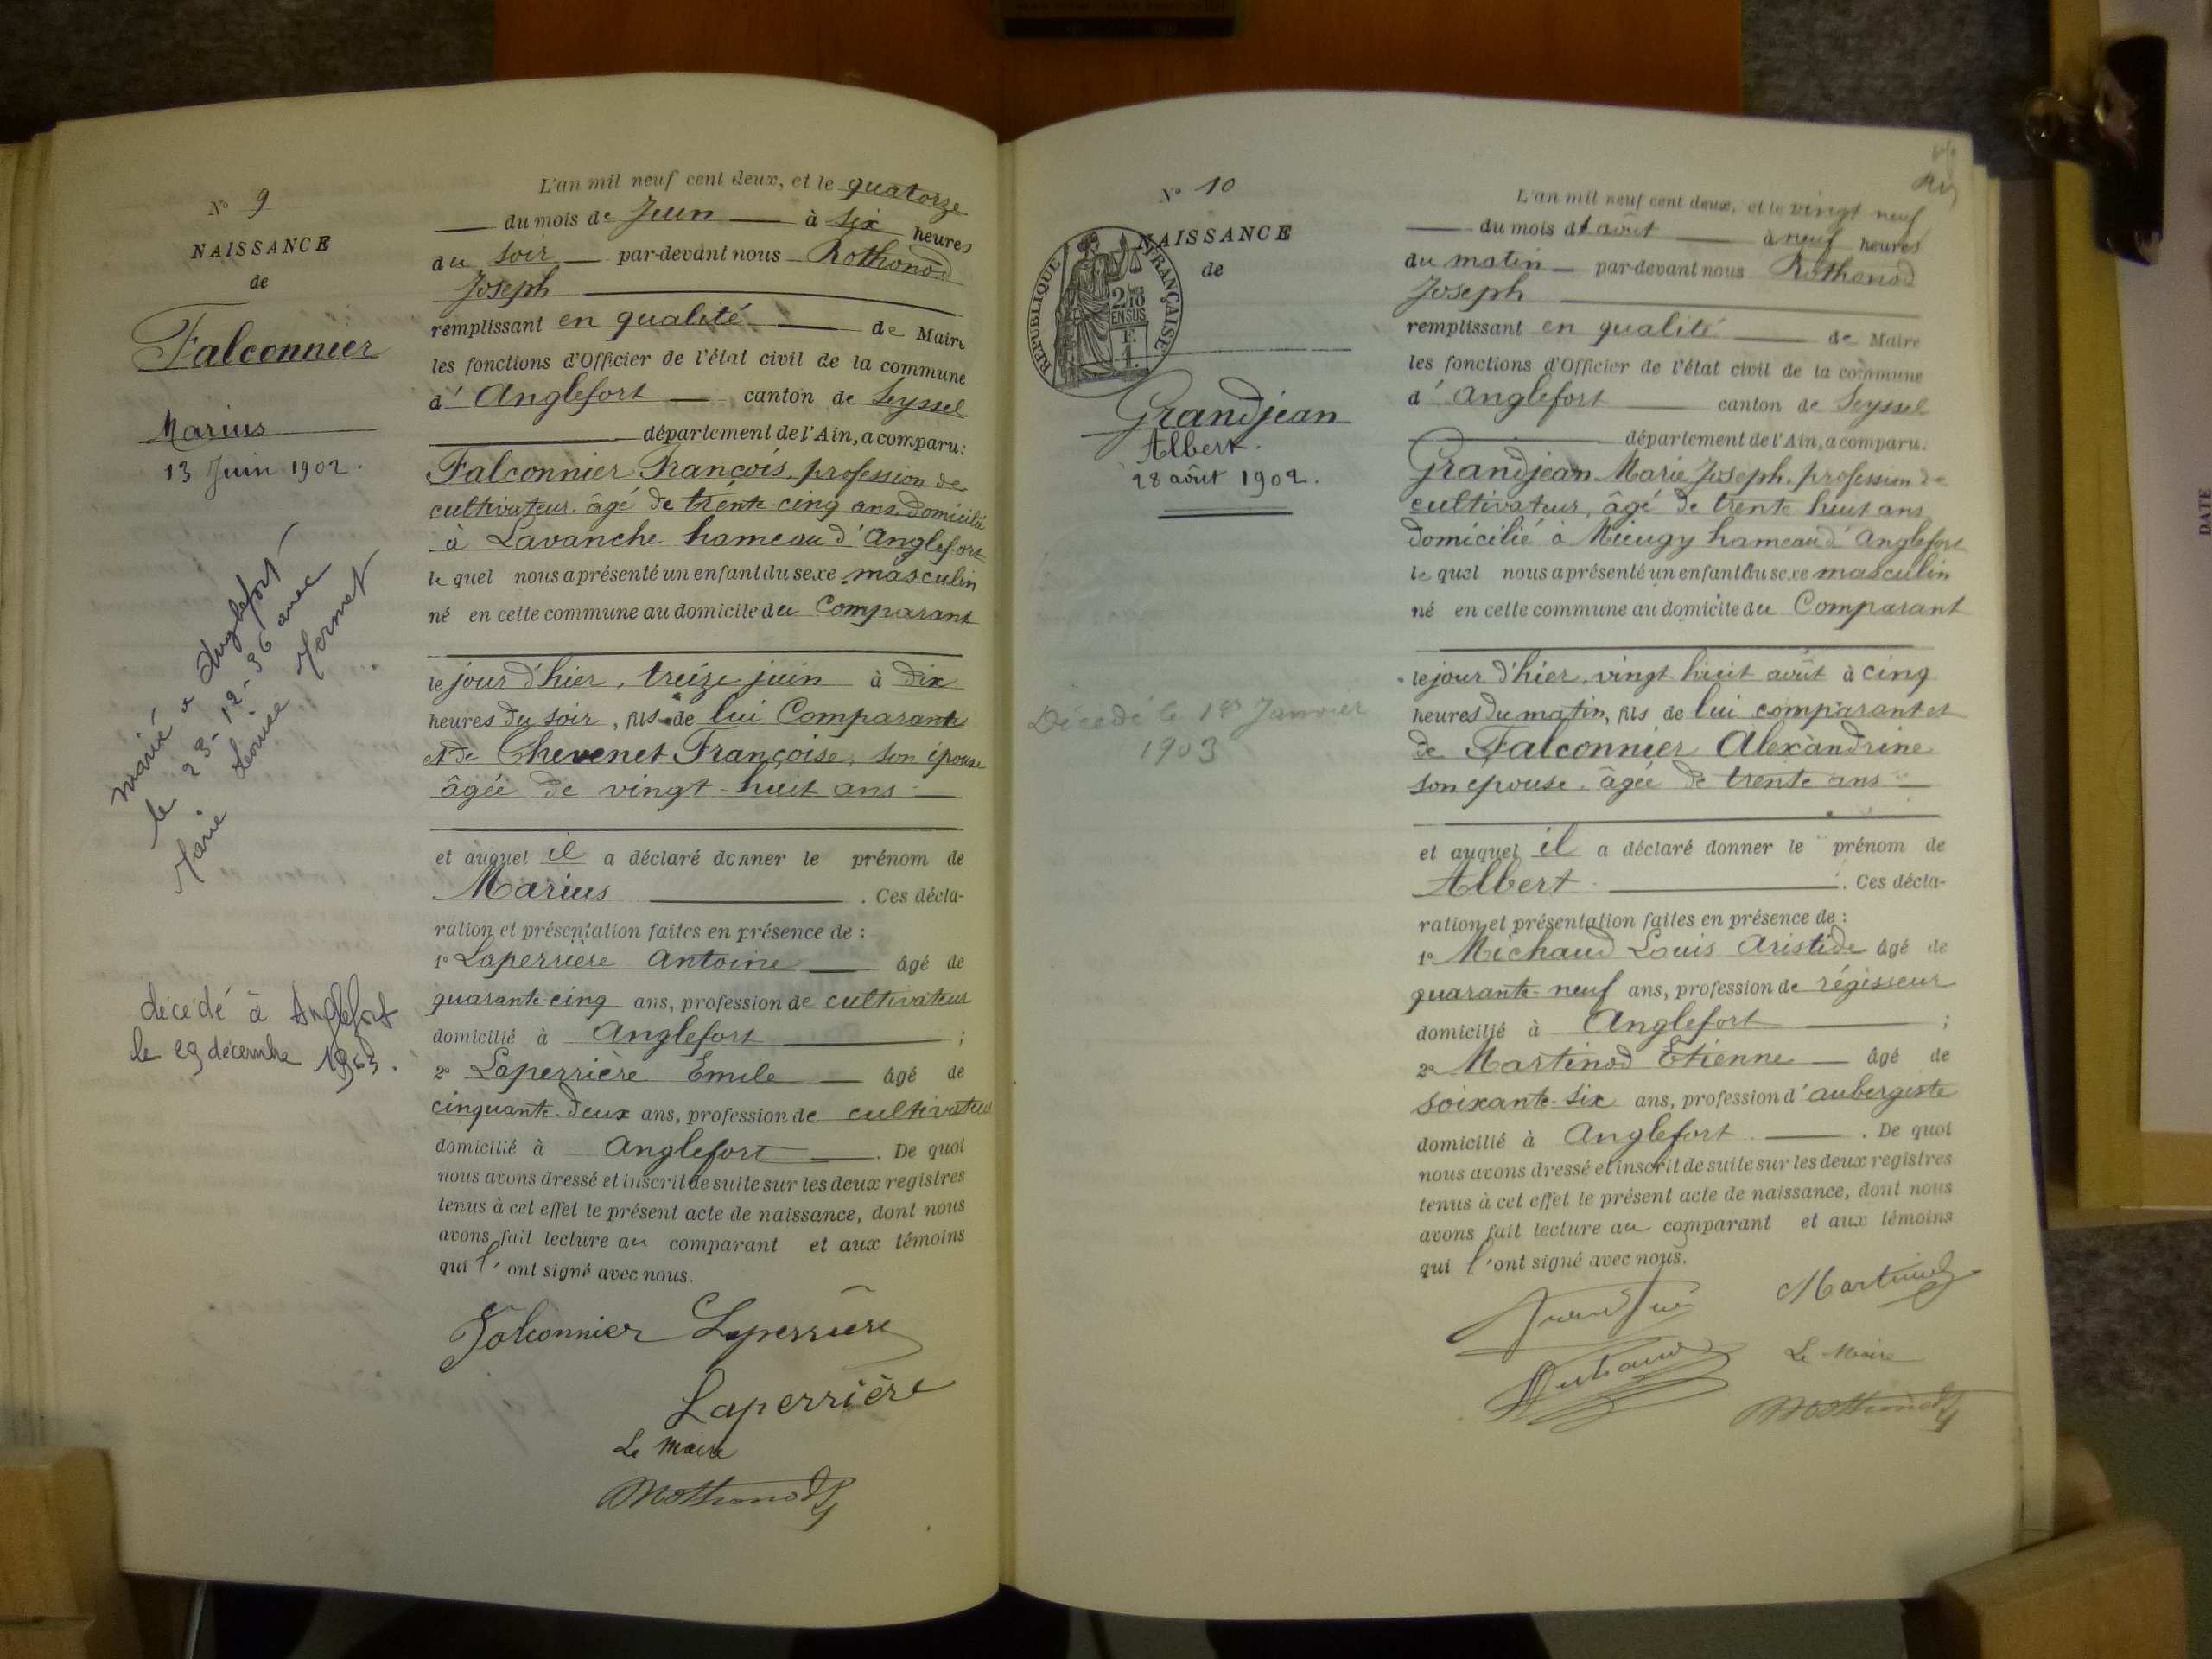 N° 9
NAISSANCE
de
Falconnier
Marius
13 Juin 1902.
marié a Anglefort
le 23-12-36 avec
Marie Louise Mornet
décédé à Anglefort
le 29 décembre 1963.
L'an mil neuf cent deux, et le quatorze
du mois de Juin à six heures
du soir par-devant nous Rothonod
Joseph
remplissant en qualité de Maire
les fonctions d'Officier de l'état civil de la commune
d' Anglefort canton de Seyssel
département de l'Ain, a comparu:
Falconnier François, profession de
cultivateur, âgé de trente-cinq ans, domicilié
à Lavanche hameau d'Anglefort
le quel nous a présenté un enfant du sexe masculin
né en cette commune au domicile du Comparant
le jour d'hier, treize juin à dix
heures du soir, fils de lui Comparante
et de Chevenet Françoise, son épouse
âgée de vingt-huit ans
et auquel il a déclaré donner le prénom de
Marius . Ces décla-
ration et présentation faites en présence de :
1° Laperrière Antoine âgé de
quarante-cinq ans, profession de cultivateur
domicilié à Anglefort ;
2° Laperrière Emile âgé de
cinquante-deux ans, profession de cultivateur
domicilié à Anglefort . De quoi
nous avons dressé et inscrit de suite sur les deux registres
tenus à cet effet le présent acte de naissance, dont nous
avons fait lecture au comparant et aux témoins
qui l'ont signé avec nous.
Falconnier Laperrière
Laperrière
Le Maire
Rothonod
N° 10
NAISSANCE
de
RÉPUBLIQUE FRANÇAISE
2/10 EN SUS
1 F.
Grandjean
Albert.
28 août 1902.
Décédé le 1er Janvier
1903
L'an mil neuf cent deux, et le vingt neuf
du mois d'août à neuf heures
du matin par-devant nous Rothonod
Joseph
remplissant en qualité de Maire
les fonctions d'Officier de l'état civil de la commune
d' Anglefort canton de Seyssel
département de l'Ain, a comparu:
Grandjean Marie Joseph, profession de
cultivateur, âgé de trente huit ans
domicilié à Mieugy hameau d'Anglefort
le quel nous a présenté un enfant du sexe masculin
né en cette commune au domicile du Comparant
le jour d'hier, vingt-huit août à cinq
heures du matin, fils de lui comparant et
de Falconnier Alexandrine
son epouse, âgée de trente ans
et auquel il a déclaré donner le prénom de
Albert . Ces décla-
ration et présentation faites en présence de :
1° Michaud Louis Aristide âgé de
quarante-neuf ans, profession de régisseur
domicilié à Anglefort ;
2° Martinod Etienne âgé de
soixante-six ans, profession d'aubergiste
domicilié à Anglefort . De quoi
nous avons dressé et inscrit de suite sur les deux registres
tenus à cet effet le présent acte de naissance, dont nous
avons fait lecture au comparant et aux témoins
qui l'ont signé avec nous.
Grandjean Martinod
Michaud Le Maire
Rothonod
DATE